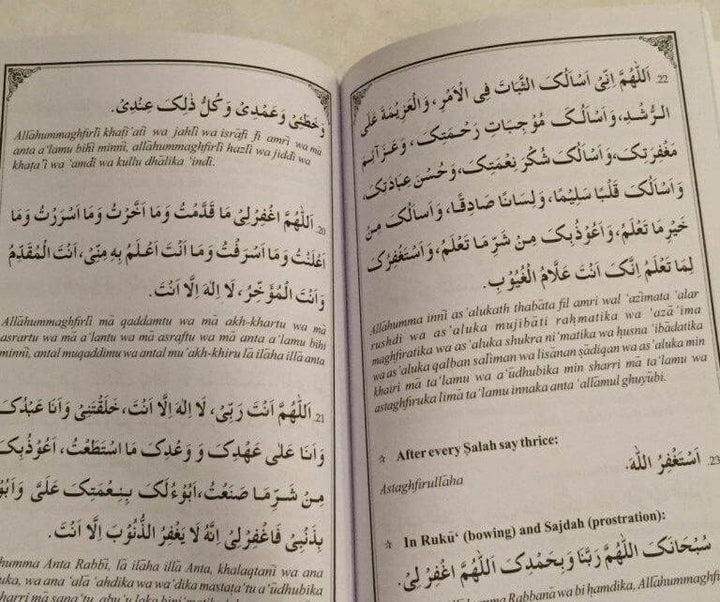 وَخَطَئِیْ وَعَمْدِیْ وَکُلُّ ذٰلِکَ عِنْدِیْ.
Allāhummaghfirlī khaṭī'atī wa jahlī wa isrāfī fī amrī wa mā
anta a'lamu bihī minnī, allāhummaghfirlī hazlī wa jiddī wa
khaṭa'ī wa 'amdī wa kullu dhālika 'indī.
20. اَللّٰهُمَّ اغْفِرْلِیْ مَا قَدَّمْتُ وَمَا اَخَّرْتُ وَمَا اَسْرَرْتُ وَمَا
اَعْلَنْتُ وَمَا اَسْرَفْتُ وَمَا اَنْتَ اَعْلَمُ بِهٖ مِنِّیْ، اَنْتَ الْمُقَدِّمُ
وَاَنْتَ الْمُؤَخِّرُ، لَا اِلٰهَ اِلَّا اَنْتَ.
Allāhummaghfirlī mā qaddamtu wa mā akh-khartu wa mā
asrartu wa mā a'lantu wa mā asraftu wa mā anta a'lamu bihī
minnī, antal muqaddimu wa antal mu'akh-khiru lā ilāha illā anta
21. اَللّٰهُمَّ اَنْتَ رَبِّیْ، لَا اِلٰهَ اِلَّا اَنْتَ، خَلَقْتَنِیْ وَاَنَا عَبْدُکَ
وَاَنَا عَلٰی عَهْدِکَ وَ وَعْدِکَ مَا اسْتَطَعْتُ، اَعُوْذُبِکَ
مِنْ شَرِّ مَا صَنَعْتُ، اَبُوْءُ لَکَ بِنِعْمَتِکَ عَلَیَّ وَاَبُوْ
بِذَنْۢبِیْ فَاغْفِرْلِیْ اِنَّهٗ لَا یَغْفِرُ الذُّنُوْبَ اِلَّا اَنْتَ.
humma Anta Rabbī, lā ilāha illā Anta, khalaqtanī wa ana
uka, wa ana 'alā 'ahdika wa wa'dika mastaṭa'tu a'ūdhubika
harri mā ṣana'tu, abū'u laka bini'matika
22. اَللّٰهُمَّ اِنِّیْ اَسْاَلُکَ الثَّبَاتَ فِی الْاَمْرِ، وَالْعَزِیْمَةَ عَلَی
الرُّشْدِ، وَاَسْاَلُکَ مُوْجِبَاتِ رَحْمَتِکَ، وَعَزَآئِمَ
مَغْفِرَتِکَ، وَاَسْاَلُکَ شُکْرَ نِعْمَتِکَ، وَحُسْنَ عِبَادَتِکَ،
وَاَسْاَلُکَ قَلْبًا سَلِیْمًا، وَلِسَانًا صَادِقًا، وَاَسْاَلُکَ مِنْ
خَیْرِ مَا تَعْلَمُ، وَاَعُوْذُبِکَ مِنْ شَرِّ مَا تَعْلَمُ، وَاَسْتَغْفِرُکَ
لِمَا تَعْلَمُ اِنَّکَ اَنْتَ عَلَّامُ الْغُیُوْبِ.
Allāhumma innī as'alukath thabāta fil amri wal 'azīmata 'alar
rushdi wa as'aluka mujibāti raḥmatika wa 'azā'ima
maghfiratika wa as'aluka shukra ni'matika wa ḥusna 'ibādatika
wa as'aluka qalban salīman wa lisānan ṣādiqan wa as'aluka min
khairi mā ta'lamu wa a'ūdhubika min sharri mā ta'lamu wa
astaghfiruka limā ta'lamu innaka anta 'allāmul ghuyūbi.
☆ After every Ṣalah say thrice:
23. اَسْتَغْفِرُ اللّٰهَ.
Astaghfirullāha
☆ In Rukū' (bowing) and Sajdah (prostration):
سُبْحَانَکَ اللّٰهُمَّ رَبَّنَا وَبِحَمْدِکَ اَللّٰهُمَّ اغْفِرْ لِیْ.
humma Rabbanā wa bi ḥamdika, Allāhummaghfi